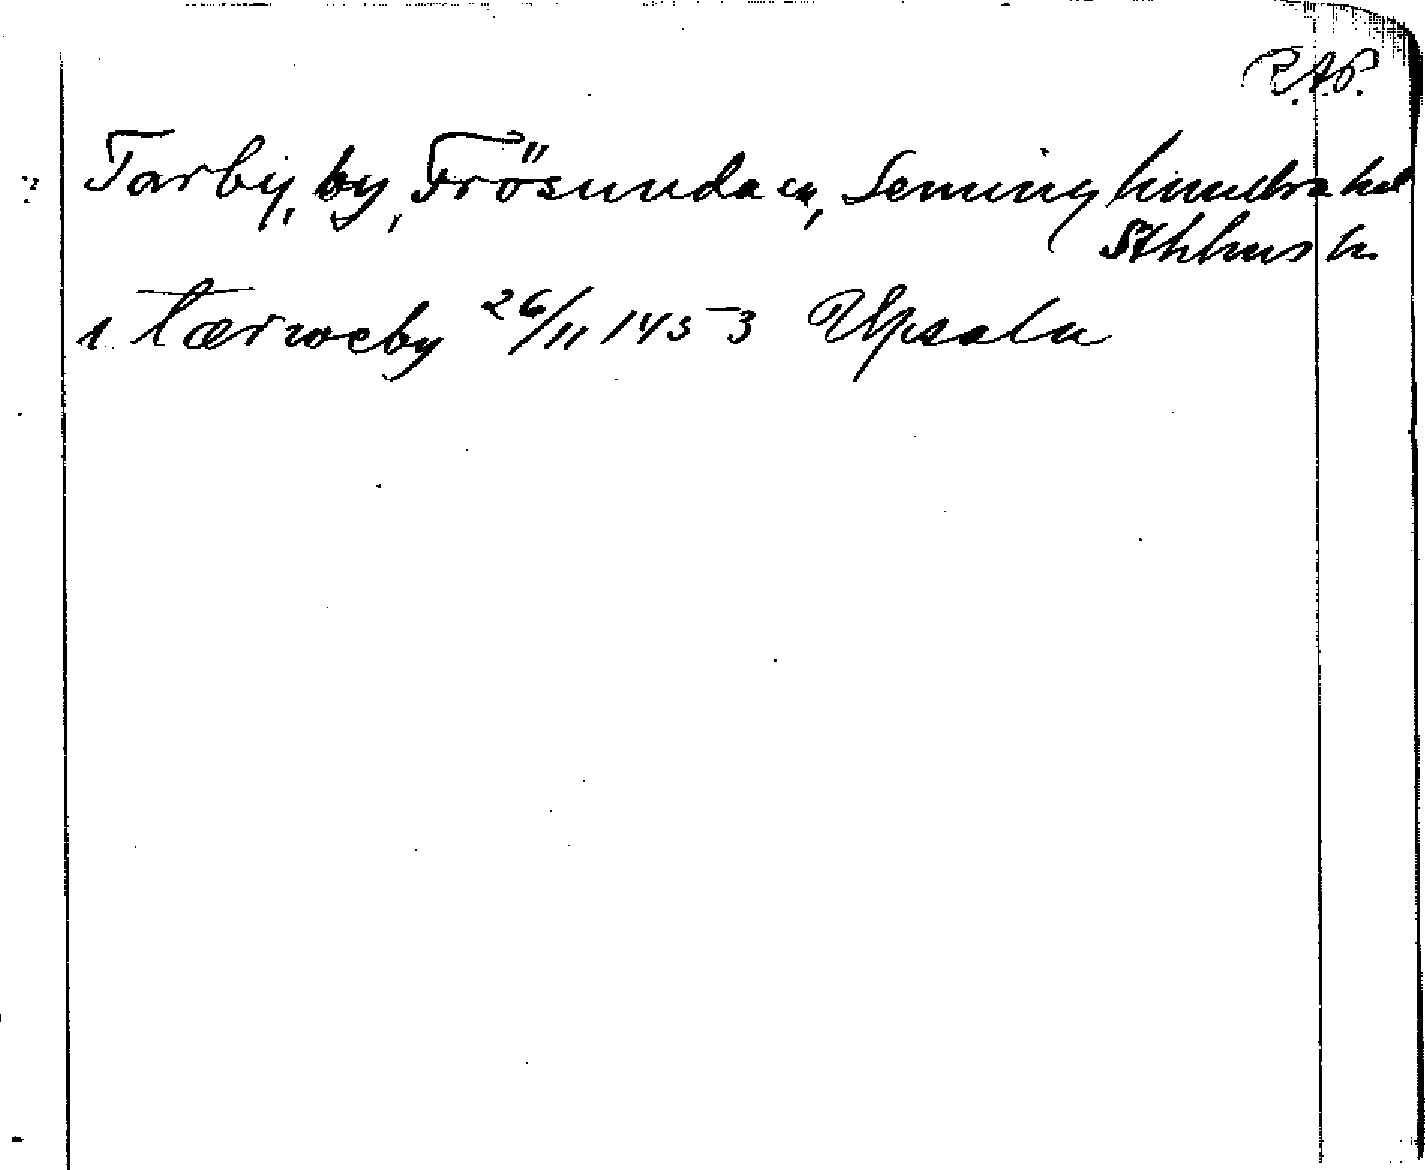 R.A.P.
Tarby, by, Frösunda sn, Seminghundra hd
Sthlms ln.
i Tærwæby 26/11 1453 Upsala